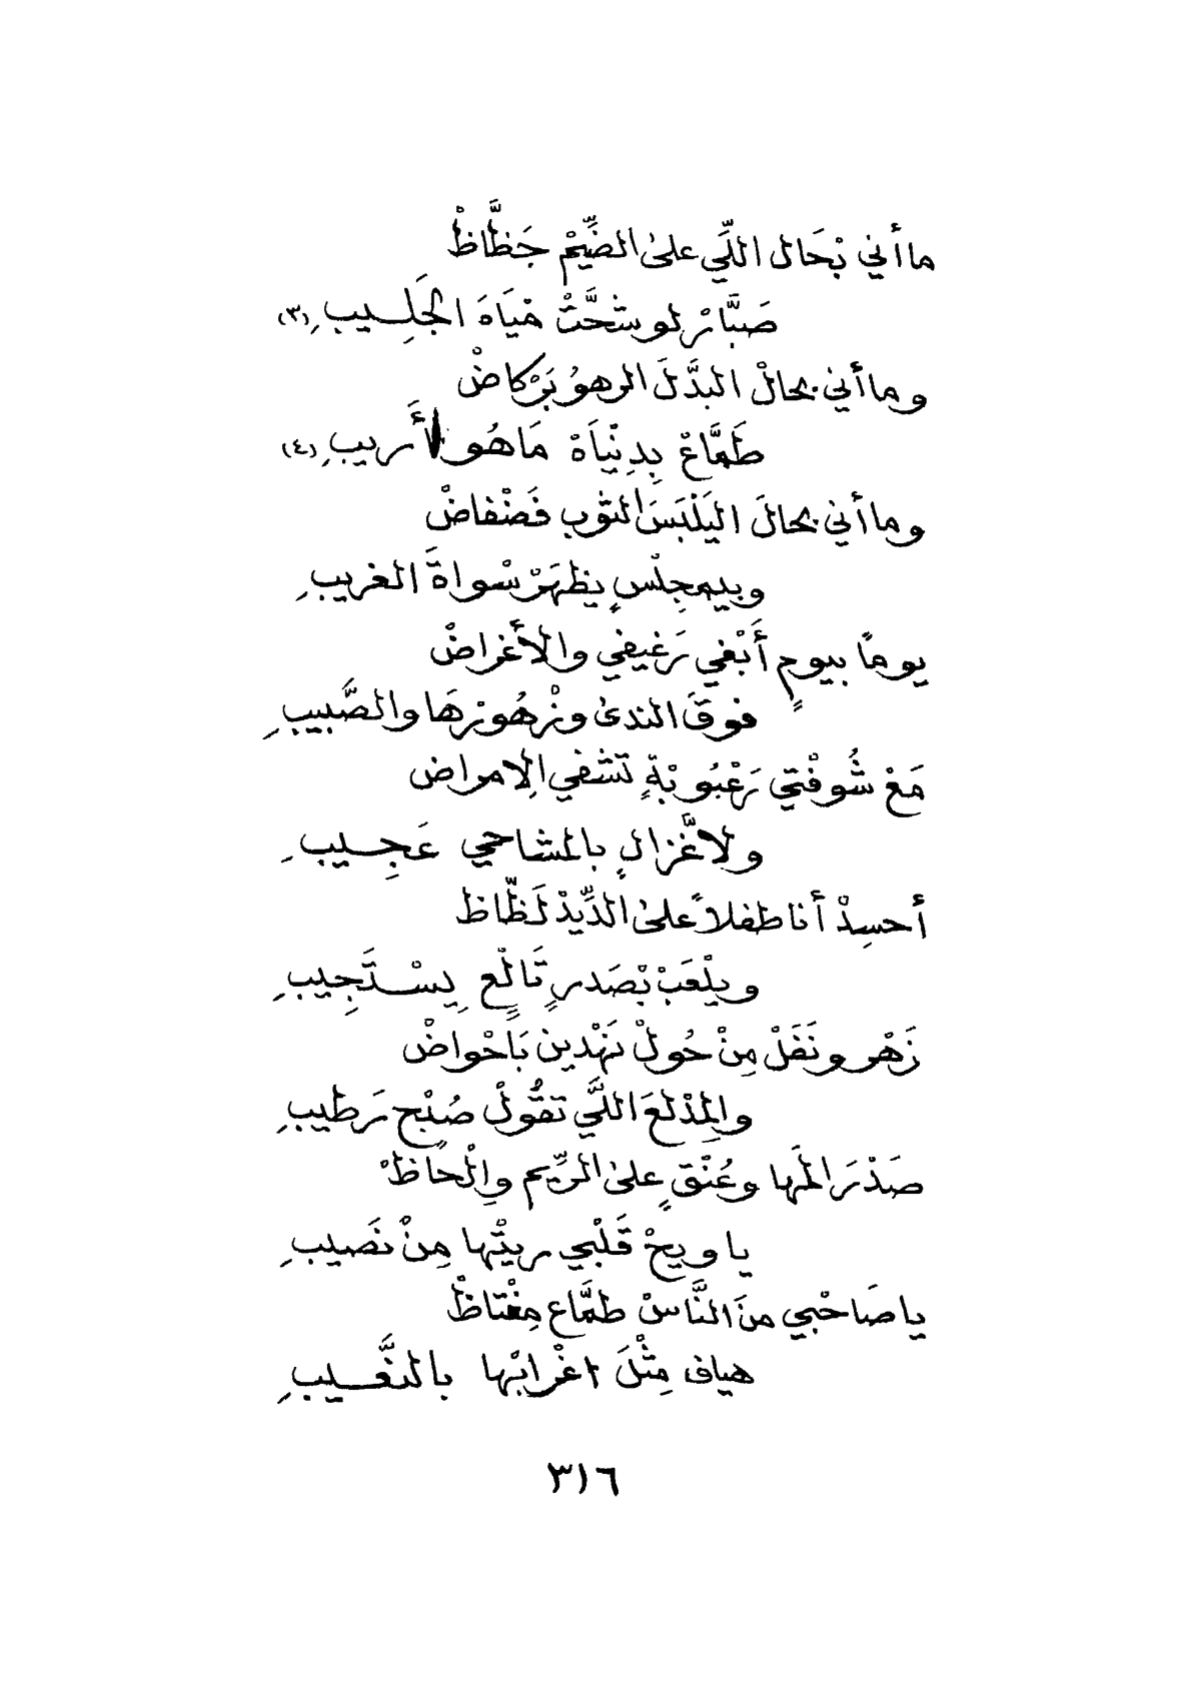 ما أني بْحَال اللِّي على الضِّيْم جَظَّاظْ
صَبَّارْ لو شَحَّتْ مْيَاهَ الجَلِيب (٣)
وما أني بحالْ البدَّلَ الرهوُ بَرْكاضْ
طَمَّاعْ بِدِنْيَاهْ مَاهُو لأَريب (٤)
وما أني بحالَ اليَلْبَسَ الثوب فَضْفاضْ
وبيمجِلْسٍ يظهَرْ سْواةَ الغريبِ
يوماً بيومٍ أَبْغي رَغيفي والأَغراضْ
فوقَ الندى وزْهُورْهَا والصَّبيبِ
مَعْ شُوفْتي رَعْبُوبْةٍ تشفي الِامراض
ولا غَّزالٍ بالمشاحي عَجِيبِ
أحسِدْ أنا طفلاً على الدِّيدْ لَظَّاظ
ويلْعَبْ بْصَدرٍ تَالْعٍ يِسْتَجِيبِ
زَهْر ونَفَلْ مِنْ حُولْ نَهْدين بَاحْواضْ
والمِدْلعَ اللَّي تقُولْ صُبْح رَطيبِ
صَدْرَ المَها وعُنْقٍ على الرِّيم والْحَاظْ
يا ويحْ قَلْبي ريتْها مِنْ نَصيبِ
يا صَاحْبي منَ النَّاسْ طمَّاع مِغْتاظْ
هياف مِثْلَ اغْرابْها بالنَّعيبِ
٣١٦